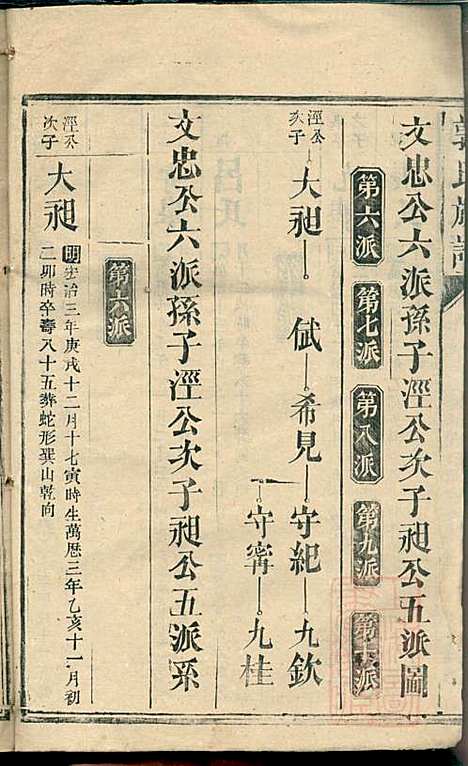 文忠公六派孫子涇公次子昶公五派圖
第六派 第七派 第八派 第九派 第十派
涇公次子 大昶 侙 希見 守紀 九欽
守寗 九桂
文忠公六派孫子涇公次子昶公五派系
第六派
涇公次子 大昶 明宏治三年庚戌十二月十七寅時生萬曆三年乙亥十一月初
二卯時卒壽八十五葬蛇形巽山乾向